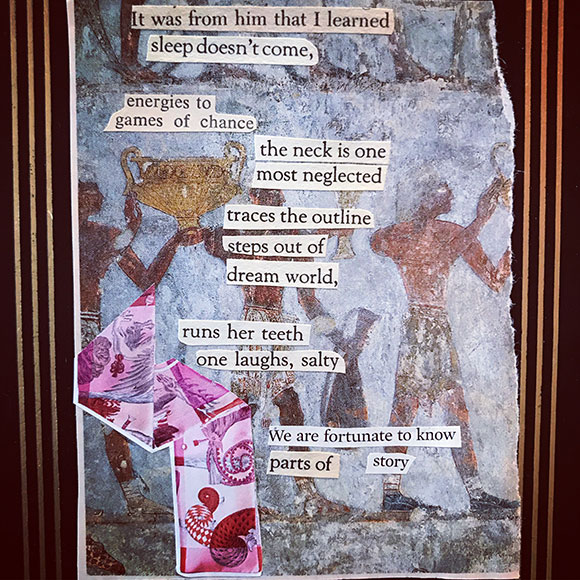 It was from him that I learned
sleep doesn't come,
energies to
games of chance
the neck is one
most neglected
traces the outline
steps out of
dream world,
runs her teeth
one laughs, salty
We are fortunate to know
parts of story